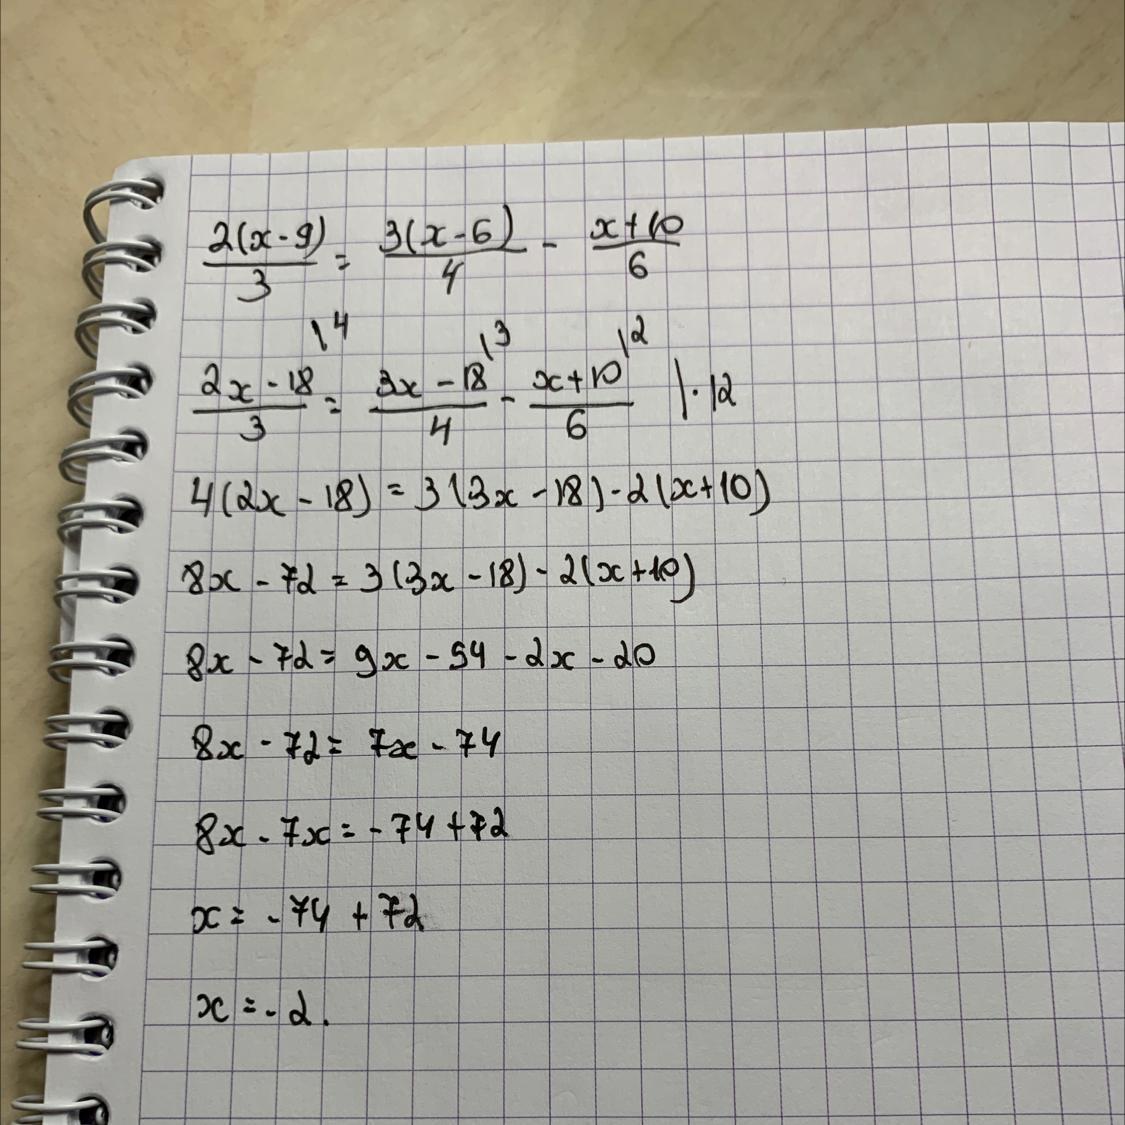 2(x-9)/3 = 3(x-6)/4 - x+10/6
2x-18/3 \4 = 3x-18/4 \3 - x+10/6 \2 |·12
4(2x-18) = 3(3x-18)-2(x+10)
8x-72 = 3(3x-18)-2(x+10)
8x-72 = 9x-54-2x-20
8x-72 = 7x-74
8x-7x = -74+72
x = -74+72
x = -2.